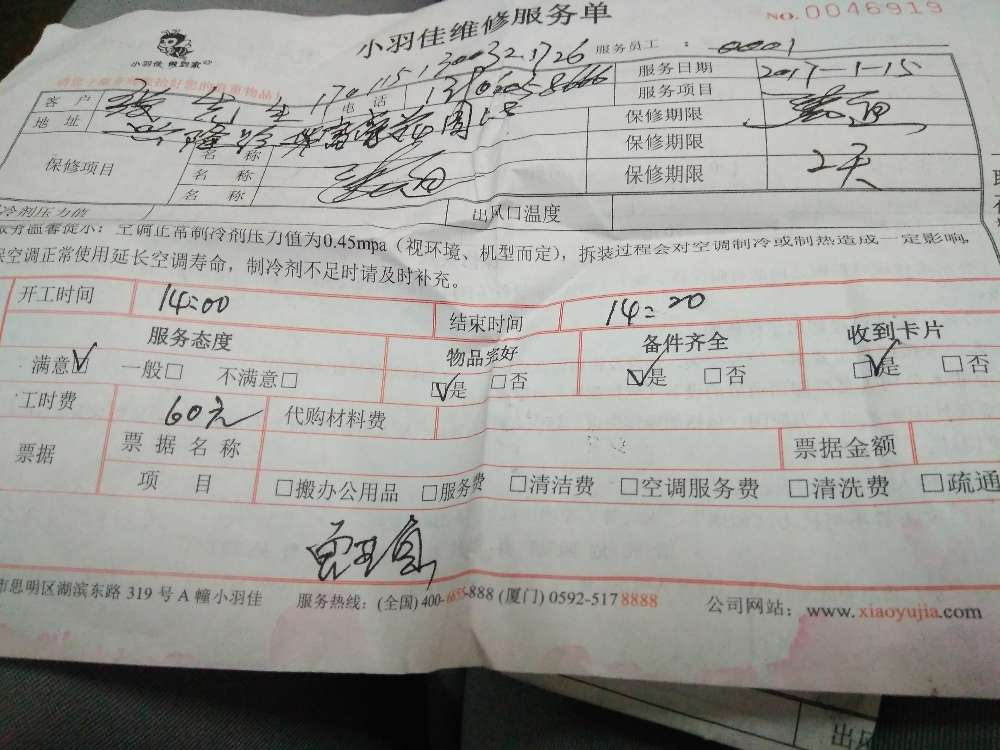 小羽佳维修服务单
NO.0046919
小羽佳 做到家
服务员工：0001
客户 张先生 电话
服务日期 2017-1-15
服务项目
地址
保修期限
保修项目 名称
保修期限
名称
名称
保修期限 2天
冷剂压力值
出风口温度
服务温馨提示：空调正常制冷剂压力值为0.45mpa（视环境、机型而定），拆装过程会对空调制冷或制热造成一定影响，
保空调正常使用延长空调寿命，制冷剂不足时请及时补充。
开工时间 14:00 结束时间 14:20
服务态度 物品完好 备件齐全 收到卡片
满意☑ 一般□ 不满意□ ☑是 □否 ☑是 □否 ☑是 □否
工时费 60元 代购材料费
票据 票据名称 票据金额
项目 □搬办公用品 □服务费 □清洁费 □空调服务费 □清洗费 □疏通
市思明区湖滨东路 319 号 A 幢小羽佳 服务热线：(全国) 400-6655-888 (厦门) 0592-517 8888 公司网站：www.xiaoyujia.com